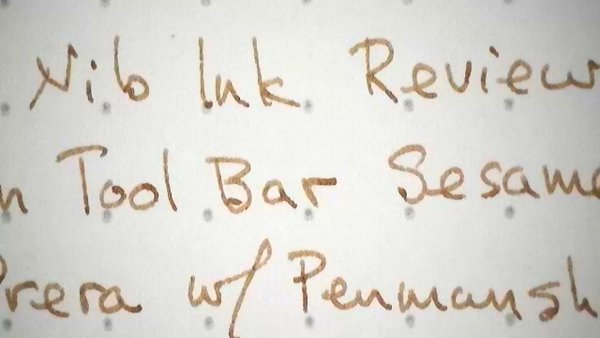 Nib Ink Review
n Tool Bar Sesame
Prera w/ Penmansh